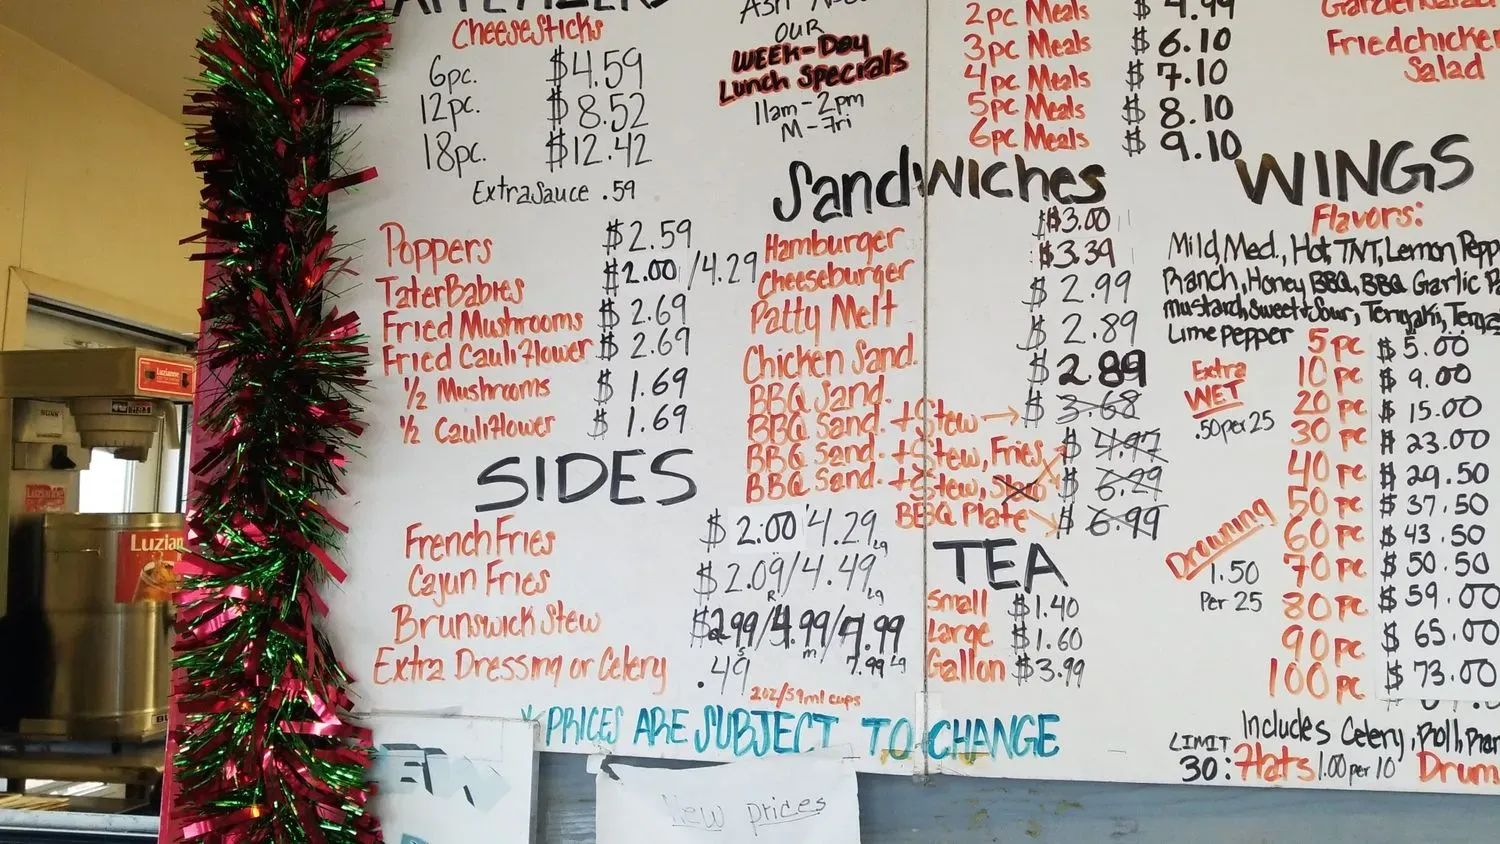 APPETIZERS
Cheesesticks
6pc. $4.59
12pc. $8.52
18pc. $12.42
Extra Sauce .59
Poppers $2.59
TaterBabies $2.00/4.29
Fried Mushrooms $2.69
Fried Cauliflower $2.69
1/2 Mushrooms $1.69
1/2 Cauliflower $1.69
SIDES
French Fries $2.00/4.29 Lg
Cajun Fries $2.09 R/4.49 Lg
Brunswick Stew $2.99 S/4.99 m/7.99
7.99 Lg
Extra Dressing or Celery .49
2oz/59ml cups
*PRICES ARE SUBJECT TO CHANGE
New prices
OUR
WEEK-Day
Lunch Specials
11am-2pm
M-Fri
2pc Meals $4.99
3pc Meals $6.10
4pc Meals $7.10
5pc Meals $8.10
6pc Meals $9.10
Sandwiches
Hamburger $3.00
Cheeseburger $3.39
Patty Melt $2.99
Chicken Sand. $2.89
BBQ Sand. $2.89
BBQ Sand. + Stew $3.68
BBQ Sand. + Stew, Fries $4.97
BBQ Sand. + Stew, Slaw $6.29
BBQ Plate $6.99
TEA
Small $1.40
Large $1.60
Gallon $3.99
Friedchicken
Salad
WINGS
Flavors:
Mild, Med., Hot, TNT, Lemon Pepp
Ranch, Honey BBQ, BBQ, Garlic Pa
mustard, Sweet+Sour, Teriyaki,
Lime pepper
Extra
WET
.50 per 25
Drowning
1.50
Per 25
5 pc $5.00
10 pc $9.00
20 pc $15.00
30 pc $23.00
40 pc $29.50
50 pc $37.50
60 pc $43.50
70 pc $50.50
80 pc $59.00
90 pc $65.00
100 pc $73.00
Includes Celery, Roll,
LIMIT
30: Flats 1.00 per 10 Drum
Luzianne
Luzianne
Luzian